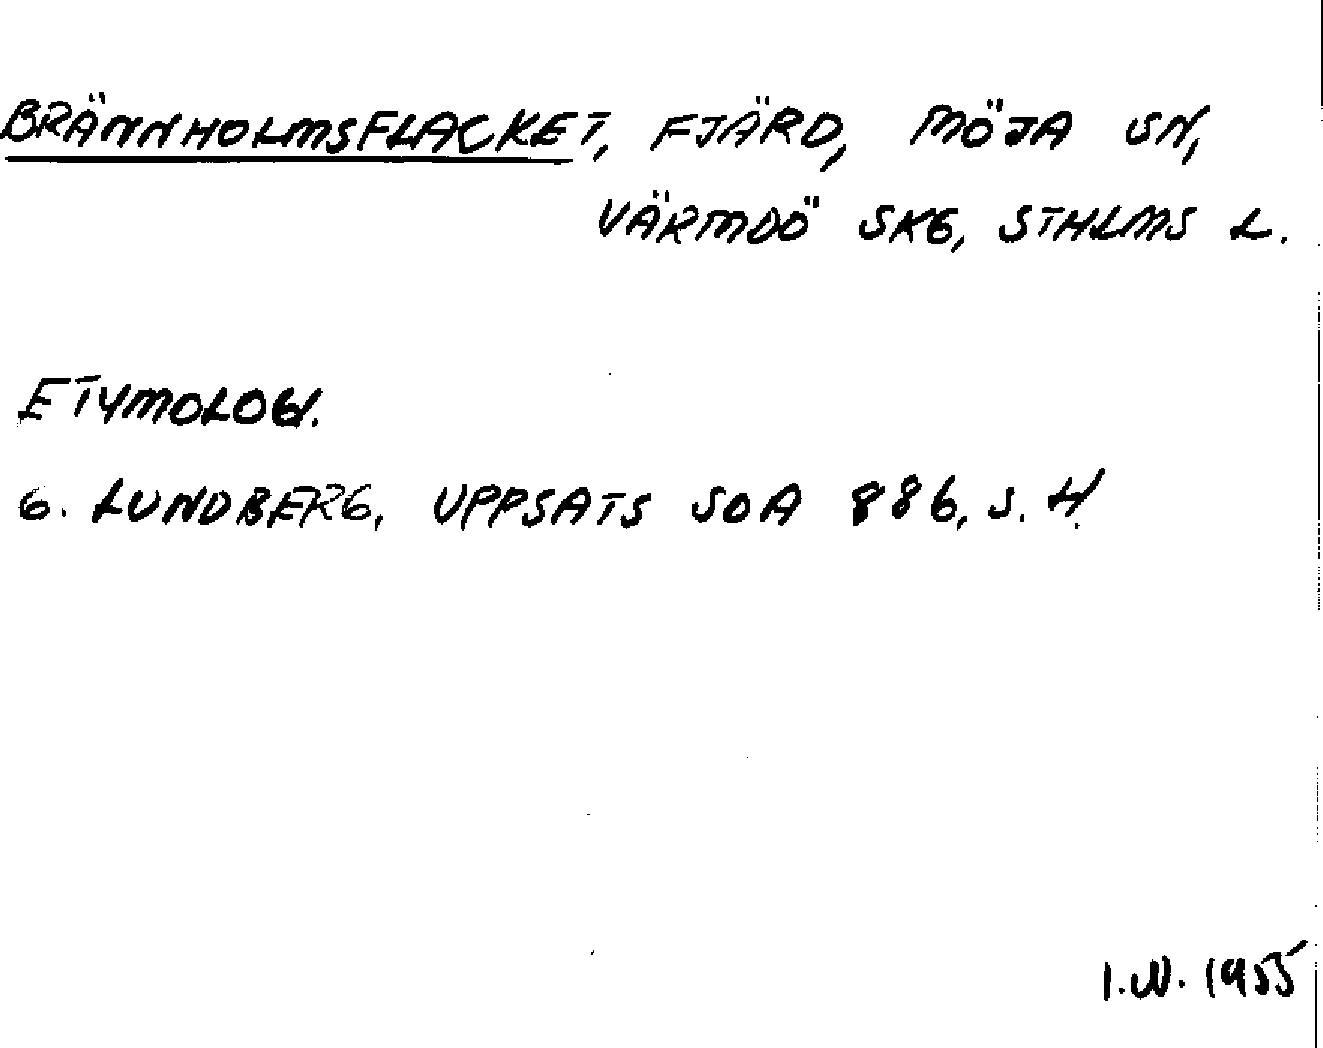 BRÄNNHOLMSFLACKET, FJÄRD, MÖJA SN,
VÄRMDÖ SKG, STHLMS L.
ETYMOLOGI.
G. LUNDBERG, UPPSATS SOA 886, S. 4.
I.W. 1955